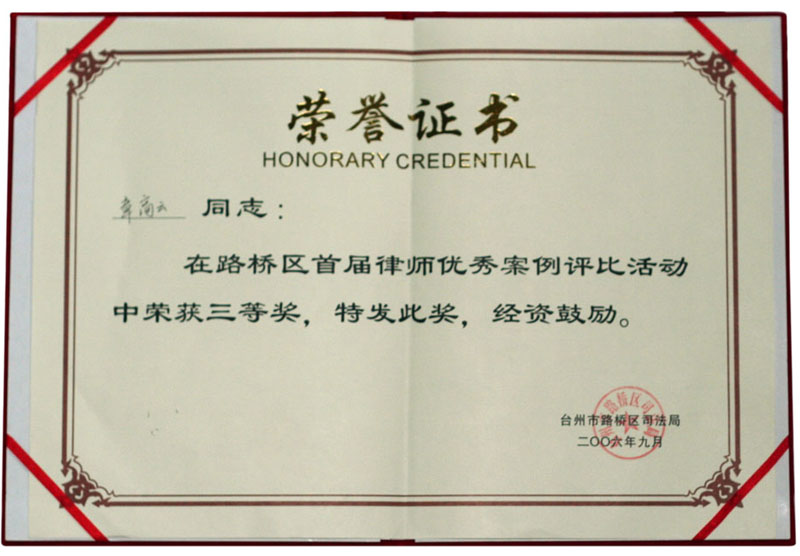 荣誉证书
HONORARY CREDENTIAL
同志：
在路桥区首届律师优秀案例评比活动
中荣获三等奖，特发此奖，经资鼓励。
台州市路桥区司法局
二〇〇六年九月